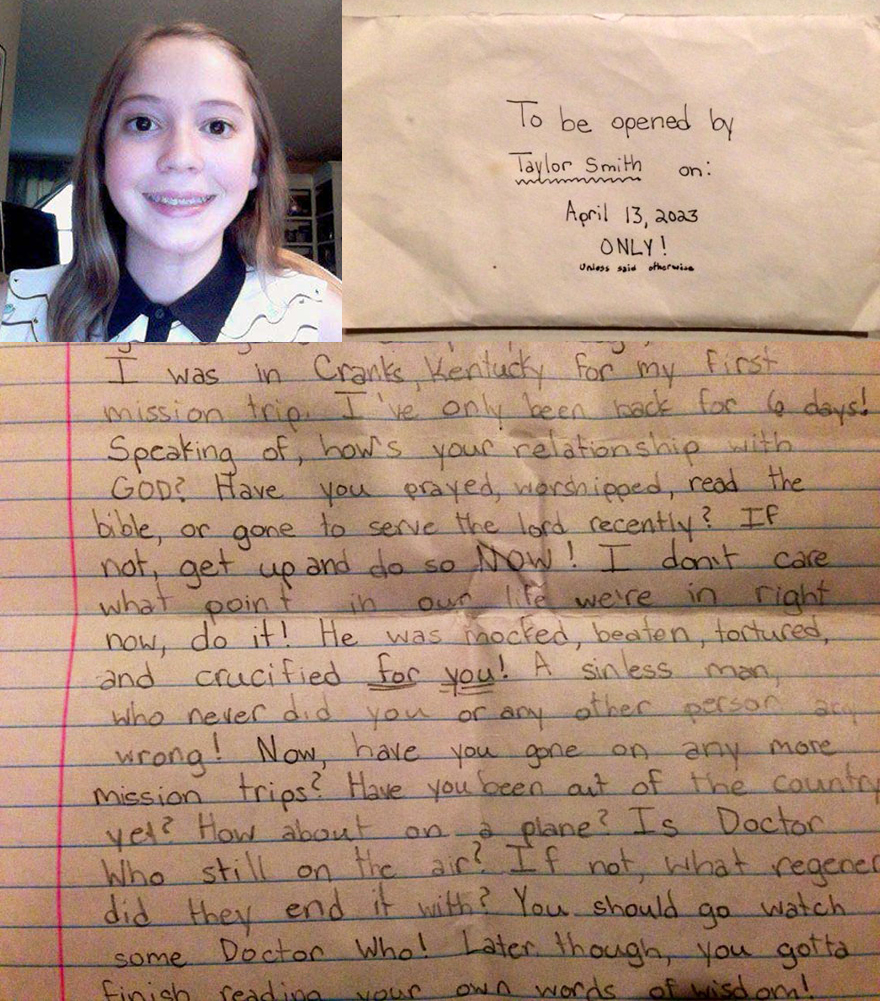 To be opened by
Taylor Smith on:
April 13, 2023
ONLY!
unless said otherwise
I was in Cranks, Kentucky for my first
mission trip. I've only been back for 6 days!
Speaking of, how's your relationship with
GOD? Have you prayed, worshipped, read the
bible, or gone to serve the lord recently? If
not, get up and do so NOW! I don't care
what point in our life we're in right
now, do it! He was mocked, beaten, tortured,
and crucified for you! A sinless man,
who never did you or any other person any
wrong! Now, have you gone on any more
mission trips? Have you been out of the country
yet? How about on a plane? Is Doctor
Who still on the air? If not, what regener
did they end it with? You should go watch
some Doctor Who! Later though, you gotta
finish reading your own words of wisdom!